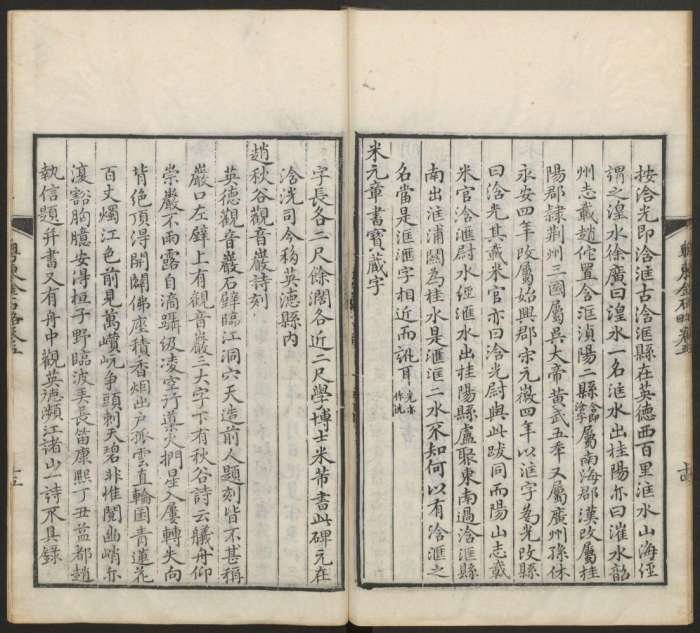 按浛光即浛洭古浛洭縣在英德西百里洭水山海經
謂之湟水徐廣曰湟水一名洭水出桂陽亦曰漼水韶
州志載趙佗置含洭湞陽二縣含即浛字屬南海郡漢改屬桂
陽郡隸荆州三國屬吳大帝黃武五年又屬廣州孫休
永安四年改屬始興郡宋元徽四年以洭字為光改縣
曰浛光其載米官亦曰浛光尉與此跋同而陽山志載
米官浛洭尉水經洭水出桂陽縣盧聚東南過浛洭縣
南出洭浦關為桂水是洭滙二水不知何以有浛滙之
名當是洭滙字相近而訛耳光亦作洸
米元章書寶藏字
字長各二尺餘濶各近二尺學博士米芾書此碑元在
浛洸司今移英德縣內
趙秋谷觀音巖詩刻
英德觀音巖石壁臨江洞穴天造前人題刻皆不甚稱
巖口左壁上有觀音巖三大字下有秋谷詩云艤舟仰
崇巖不雨露自滴躡級凌空孑葉火捫星入屢轉失向
背絕頂得開闢佛座積香烟出戶孤雲直輪囷青蓮花
百丈燭江色前見萬巑岏争頭刺天碧非惟閱幽峭亦
濅豁胸臆安得桓子野臨波弄長笛康熙丁丑益都趙
執信題并書又有舟中觀英德瀕江諸山一詩不具錄
粤東金石略卷五
十四
粤東金石略卷五
十五